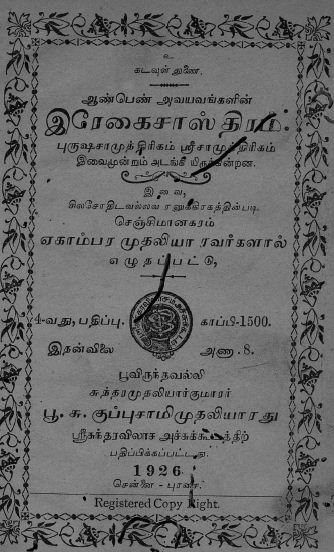 உ
கடவுள் துணை.
ஆண்பெண் அவயவங்களின்
இரேகைசாஸ்திரம்.
புருஷசாமுத்திரிகம் ஸ்ரீசாமுத்திரிகம்
இவைமூன்றும் அடங்கி யிருக்கின்றன.
இவை,
சிலசோதிடவல்லவ ரனுக்கிரகத்தின்படி
செஞ்சிமாநகரம்
ஏகாம்பர முதலியா ரவர்களால்
எழுதப்பட்டு,
4-வது, பதிப்பு. காப்பி-1500.
இதன்விலை அணா. 8.
பூவிருந்தவல்லி
சுந்தரமுதலியார்குமாரர்
பூ. சு. குப்புசாமிமுதலியாரது
ஸ்ரீசுந்தரவிலாச அச்சுக்கூடத்திற்
பதிப்பிக்கப்பட்டது.
1926
சென்னை - புரசை.
Registered Copy Right.